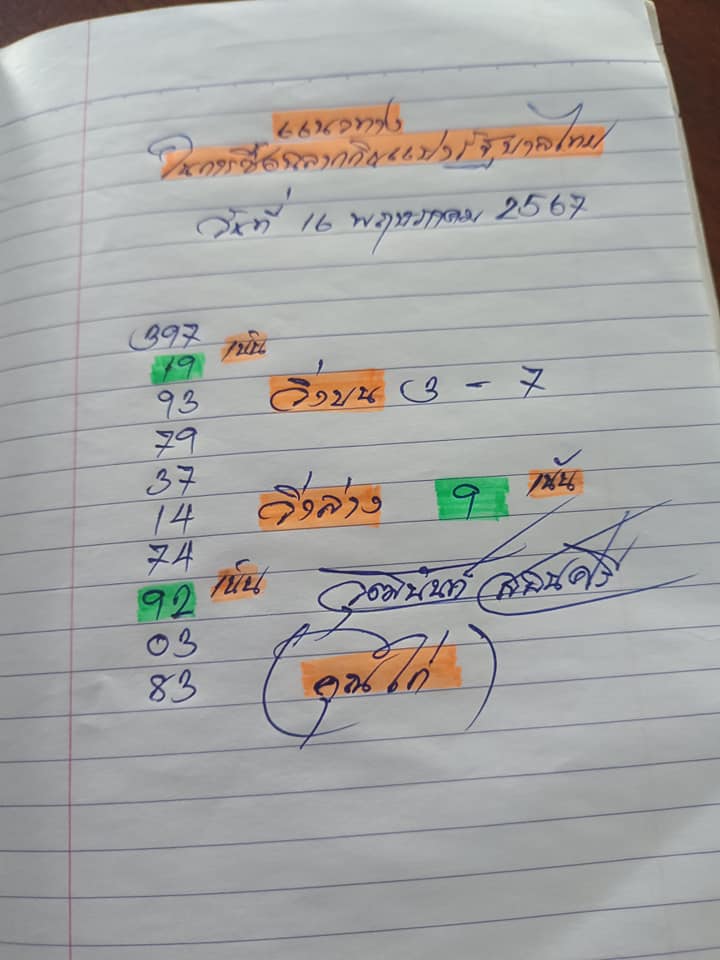 แนวทาง
ในการซื้อสลากกินแบ่งรัฐบาลไทย
วันที่ 16 พฤษภาคม 2567
397
19 เน้น
93 วิ่งบน 3 - 7
79
37
14 วิ่งล่าง 9 เน้น
74
92 เน้น วุฒินันท์ สอนศรี
03
83 (คุณไก่)